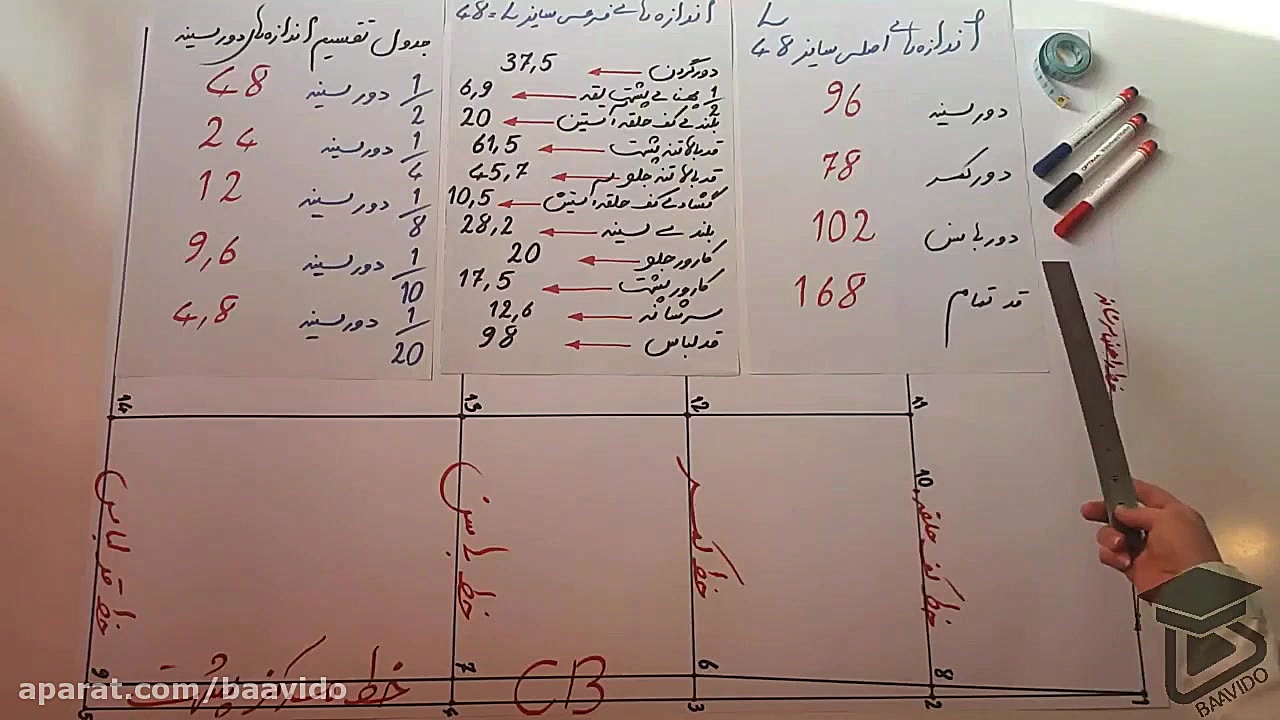 اندازه های اصلی سایز 48 L
دور سینه 96
دور کمر 78
دور باسن 102
قد تمام 168
اندازه های فرعی سایز L = 48
دور گردن ← 37,5
1/2 پهنای پشت یقه ← 6,9
بلندی کف حلقه آستین ← 20
قد بالاتنه پشت ← 61,5
قد بالاتنه جلو ← 45,7
گشادی کف حلقه آستین ← 10,5
بلندی سینه ← 28,2
کارور جلو ← 20
کارور پشت ← 17,5
سرشانه ← 12,6
قد لباس ← 98
جدول تقسیم اندازه های دور سینه
1/2 دور سینه 48
1/4 دور سینه 24
1/8 دور سینه 12
1/10 دور سینه 9,6
1/20 دور سینه 4,8
14
13
12
11
10
خط قد لباس
خط باسن
خط کمر
خط کف حلقه
9
7
6
8
خط مرکز پشت
CB
5
4
3
2
1
aparat.com/baavido
BAAVIDO